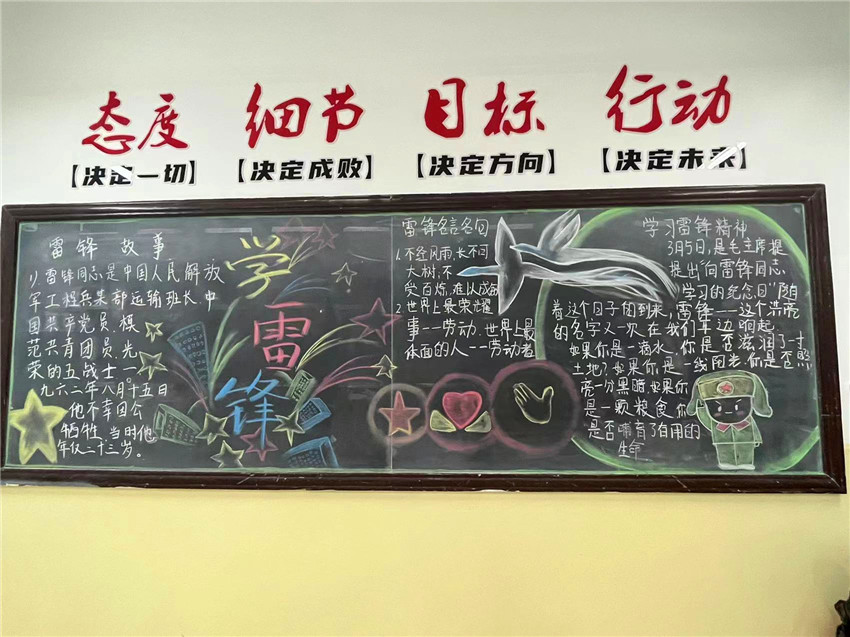 态度 细节 目标 行动
【决定一切】 【决定成败】 【决定方向】 【决定未来】
雷锋故事
雷锋同志是中国人民解放
军工程兵某部运输班长,中
国共产党员,模
范共青团员,光
荣的五战士。一
九六二年八月十五日
他不幸因公
牺牲,当时他
年仅二十三岁。
学
雷
锋
雷锋名言名句
1.不经风雨,长不可
大树,不
受百炼,难以成
2.世界上最荣耀
事--劳动.世界上最
体面的人--劳动者
学习雷锋精神
3月5日,是毛主席提
提出向雷锋同志
学习的纪念日"随
着这个日子的到来,雷锋--这个
的名字又一次在我们耳边响起
如果你是一滴水,你是否滋润了一寸
土地?如果你是一线阳光,你是否照
亮一分黑暗如果你
是一颗粮食,你
是否哺育了有用的
生命